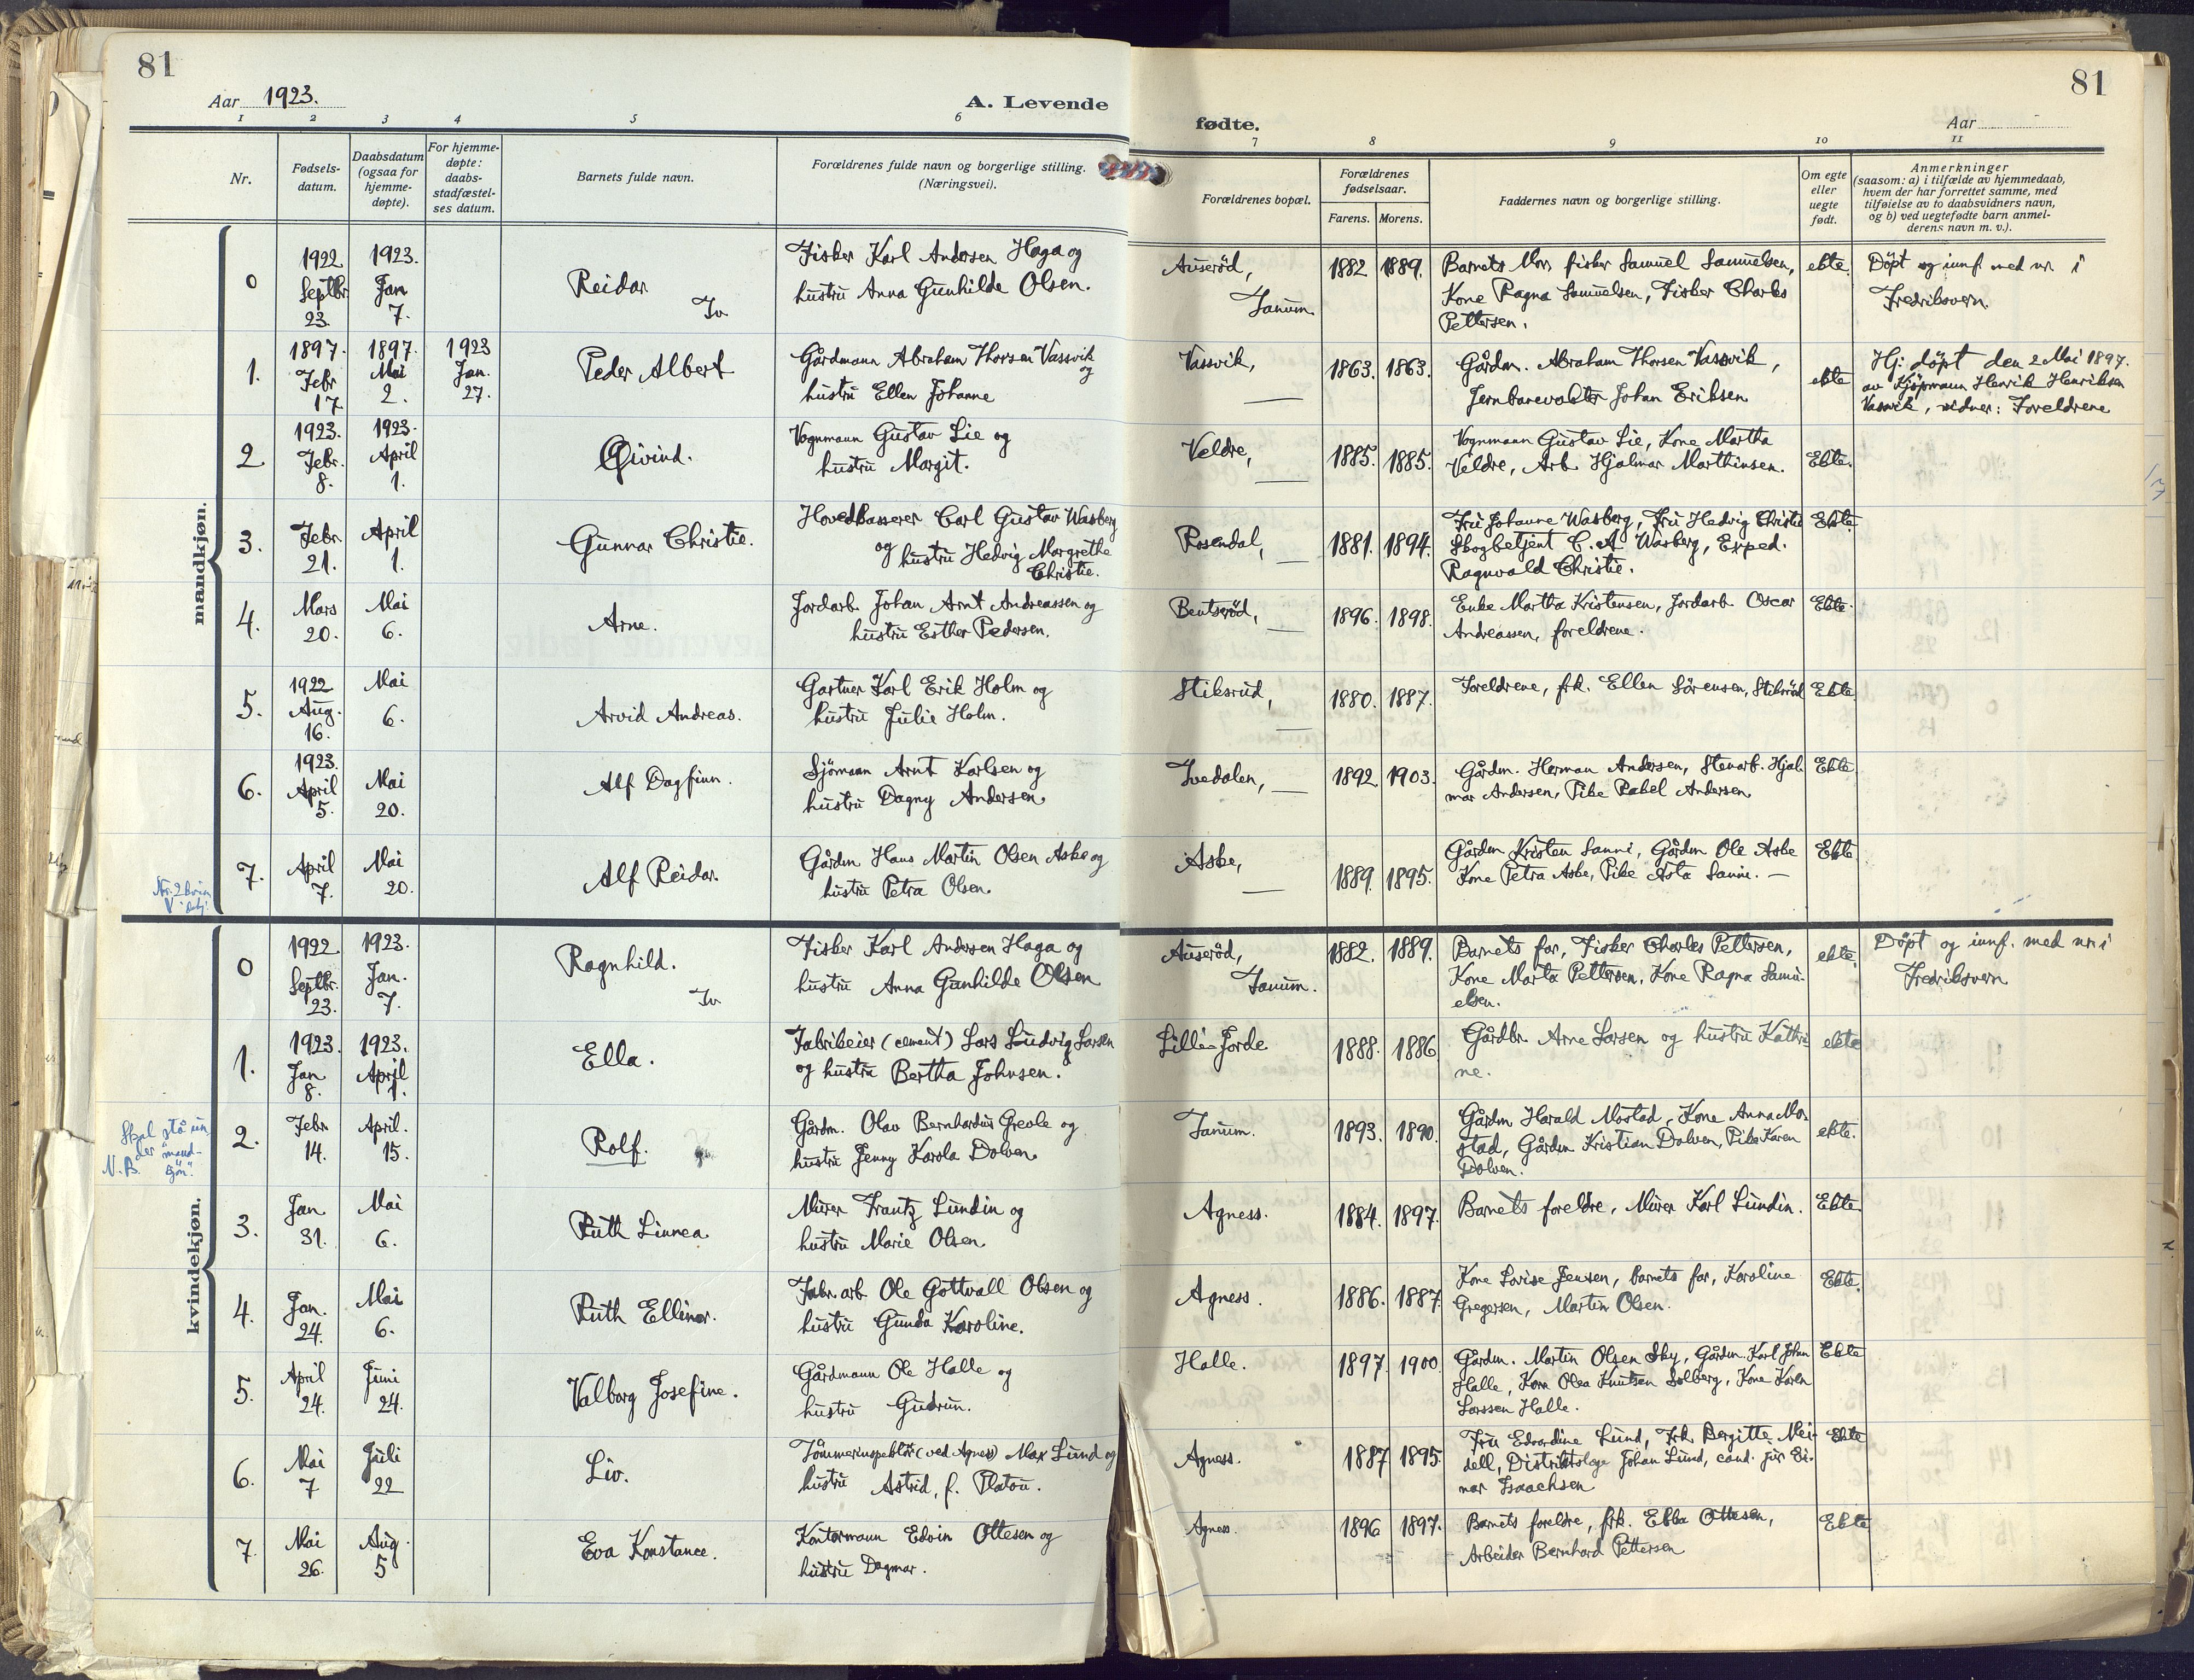 81
Aar 1923.
A. Levende
1 2 3 4 5 6
Nr.
Fødsels-
datum.
Daabsdatum
(ogsaa for
hjemme-
døpte).
For hjemme-
døpte:
daabs-
stadfæstel-
ses datum.
Barnets fulde navn.
Forældrenes fulde navn og borgerlige stilling.
(Næringsvei).
81
fødte.
Aar
7 8 9 10 11
Forældrenes bopæl.
Forældrenes
fødselsaar.
Farens. Morens.
Faddernes navn og borgerlige stilling.
Om egte
eller
uegte
født.
Anmerkninger
(saasom: a) i tilfælde av hjemmedaab,
hvem der har forrettet samme, med
tilføielse av to daabsvidners navn,
og b) ved uegtefødte barn anmel-
derens navn m. v.).
mandkjøn.
0
1922
Septbr.
23.
1923.
Jan
7.
Reidar
Tv.
Fisker Karl Andersen Haga og
hustru Anna Gunhilde Olsen.
Auserød,
Tanum
1882 1889.
Barnets Mor, fisker Samuel Samuelsen,
Kone Ragna Samuelsen, Fisker Charles
Pettersen.
ekte.
Döpt og innf. med nr. i
Fredriksvern.
1.
1897.
Febr
17.
1897.
Mai
2.
1923
Jan.
27.
Peder Albert
Gårdmann Abraham Thorsen Vassvik
og
hustru Ellen Johanne
Vassvik, —
1863. 1863.
Gårdm. Abraham Thorsen Vassvik,
Jernbanevokter Johan Eriksen
ekte
Hj: döpt den 2 Mai 1897.
av Kjøpmann Henrik Henriksen
Vassvik, vidner: Foreldrene
2.
1923.
Febr.
8.
1923.
April
1.
Øivind.
Vognmann Gustav Lie og
hustru Margit.
Veldre, —
1885. 1885.
Vognmann Gustav Lie, Kone Martha
Veldre, Arb. Hjalmar Marthinsen.
Ekte.
3.
Febr.
21.
April
1.
Gunnar Christie.
Hovedkasserer Carl Gustav Wasberg
og hustru Hedvig Margrethe
Christie.
Rosendal, —
1881. 1894.
Fru Johanne Wasberg, Fru Hedvig Christie
Skogbetjent C. A. Wasberg, Exped.
Ragnvald Christie.
Ekte.
4.
Mars
20.
Mai
6.
Arne.
Jordarb. Johan Arnt Andreassen og
hustru Esther Pedersen.
Bentserød, —
1896. 1898.
Enke Martha Kristensen, Jordarb. Oscar
Andreassen, foreldrene.
Ekte.
5.
1922
Aug.
16.
Mai
6.
Arvid Andreas.
Gartner Karl Erik Holm og
hustru Julie Holm.
Stiksrud, —
1880. 1887.
Foreldrene, frk. Ellen Sørensen, Stiksrud
Ekte.
6.
1923.
April
5.
Mai
20.
Alf Dagfinn.
Sjömann Arnt Karlsen og
hustru Dagny Andersen
Tvedalen, —
1892 1903.
Gårdm. Herman Andersen, Stenarb. Hjal-
mar Andersen, Pike Rakel Andersen
Ekte.
7.
April
7.
Mai
20.
Alf Reidar.
Gårdm Hans Martin Olsen Aske og
hustru Petra Olsen.
Aske, —
1889. 1895.
Gårdm Kristen Sanne, Gårdm Ole Aske
Kone Petra Aske, Pike Asta Sanne. —
Ekte
kvindekjøn.
0
1922.
Septbr.
23.
1923.
Jan.
7.
Ragnhild.
Tv.
Fisker Karl Andersen Haga og
hustru Anna Gunhilde Olsen
Auserød,
Tanum.
1882. 1889.
Barnets far, Fisker Charles Pettersen,
Kone Marta Pettersen, Kone Ragna Samu-
elsen.
ekte.
Döpt og innf. med nr. i
Fredriksvern
1.
1923.
Jan
8.
1923.
April
1.
Ella.
Fabrikeier (cement) Lars Ludvig Larsen
og hustru Bertha Johnsen.
Lille-Jorde
1888. 1886
Gårdbr. Arne Larsen og hustru Kathri-
ne.
ekte
Skal stå un-
der mand-
N.B. kjön.
2.
Febr
14.
April.
15.
Rolf.
Gårdm. Olav Bernhardus Grevle og
hustru Jenny Karola Dolven
Tanum.
1893. 1890.
Gårdm Harald Mostad, Kone Anna Mo-
stad, Gårdm Kristian Dolven, Pike Karen
Dolven.
ekte.
3.
Jan
31.
Mai
6.
Ruth Linnea.
Murer Frantz Lundin og
hustru Marie Olsen
Agness.
1884. 1897.
Barnets foreldre, Murer Karl Lundin.
Ekte
4.
Jan.
24.
Mai
6.
Ruth Ellinor.
Fabr.arb. Ole Gottvall Olsen og
hustru Gunda Karoline.
Agness.
1886. 1887.
Kone Lovise Jensen, barnets far, Karoline
Gregersen, Martin Olsen.
Ekte.
5.
April
24.
Juni
24.
Valborg Josefine.
Gårdmann Ole Halle og
hustru Gudrun.
Halle.
1897. 1900
Gårdm. Martin Olsen Sky, Gårdm. Karl Johan
Halle, Kone Olea Knutsen Solberg, Kone Karen
Larssen Halle.
Ekte
6.
Mai
7
Juli
22
Liv.
Tømmerinspektør (ved Agness) Max Lund og
hustru Astrid, f. Platou.
Agness.
1887 1895.
Fru Edvardine Lund, Frk. Bergitte Mei-
dell, Distriktslæge Johan Lund, cand. jur Ei-
nar Isaachsen
Ekte
7.
Mai
26.
Aug.
5
Eva Konstance.
Kontormann Edvin Ottesen og
hustru Dagmar.
Agness.
1896 1897.
Barnets foreldre, frk. Ebba Ottesen,
Arbeider Bernhard Pettersen
Ekte